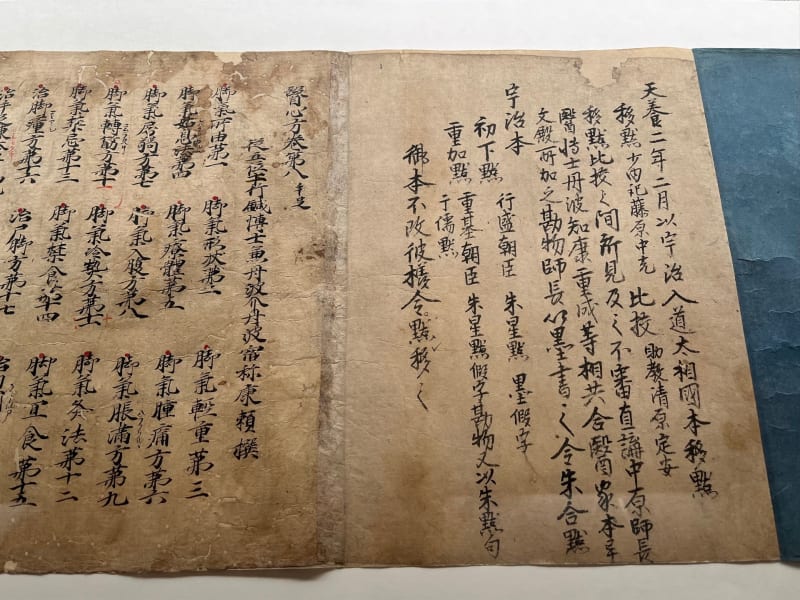 天養二年二月以宇治入道太相國本移點
移點少内記藤原中光 比挍 助教清原定安
移點比挍之間所見及之不審直講中原師長
醫博士丹波知康重成等相共合醫家本畢
文殿所加之勘物師長以墨書之令朱合點
宇治本
初下點 行盛朝臣 朱星點 墨假字
重加點 重基朝臣 朱星點假字勘物又以朱點句
于儒點
御本不改彼樣令點移之
醫心方卷第八 手足
從五位下行鍼博士兼丹波介丹波宿祢康頼撰
脚氣所由第一 脚氣形狀第二 脚氣輕重第三
脚氣姑息法第四 脚氣療體第五 脚氣腫痛方第六
脚氣屈弱方第七 脚氣入腹方第八 脚氣脹滿方第九
脚氣轉筋方第十 脚氣冷熱方第十一 脚氣灸法第十二
脚氣禁忌第十三 脚氣禁食第十四 脚氣宜食第十五
治脚踵方第十六 治尸脚方第十七